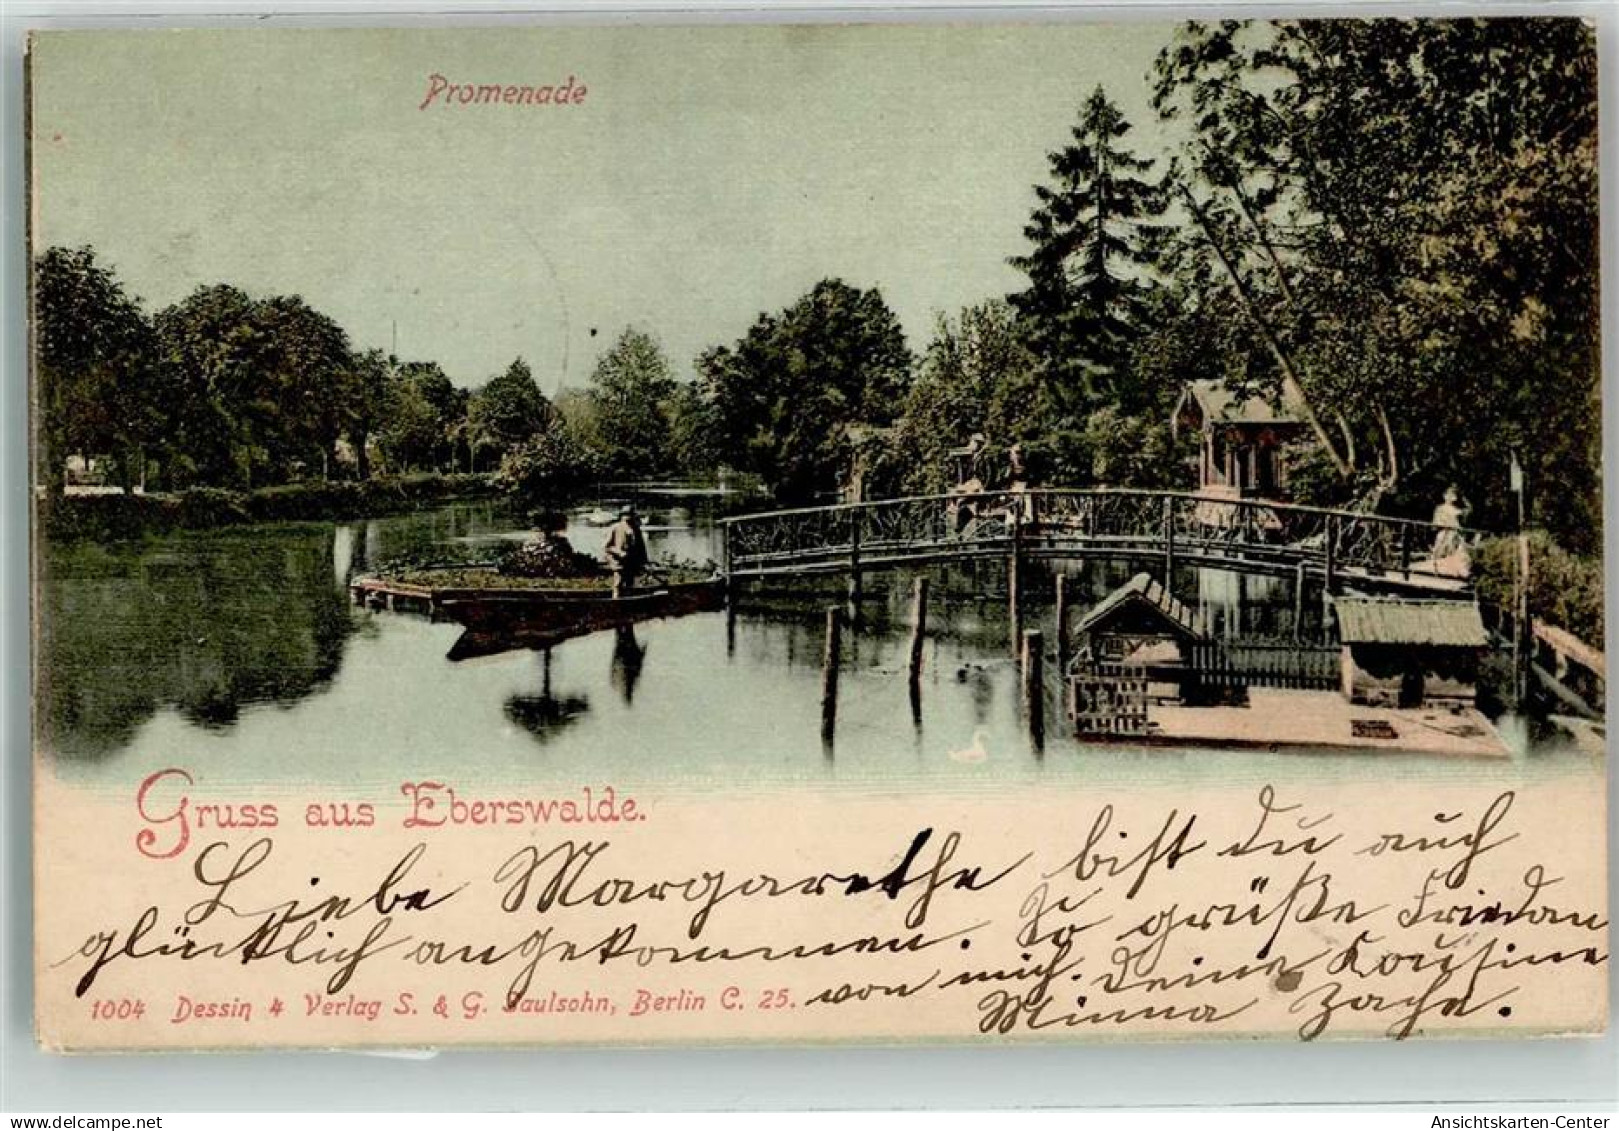 Promenade
Gruss aus Eberswalde.
Liebe Margarethe bist du auch
glücklich angekommen. So grüße Friedan
von mich. Deine Kousine
Minna Zache.
1004 Dessin 4 Verlag S. & G. Saulsohn, Berlin C. 25.
delcampe.net
Ansichtskarten-Center